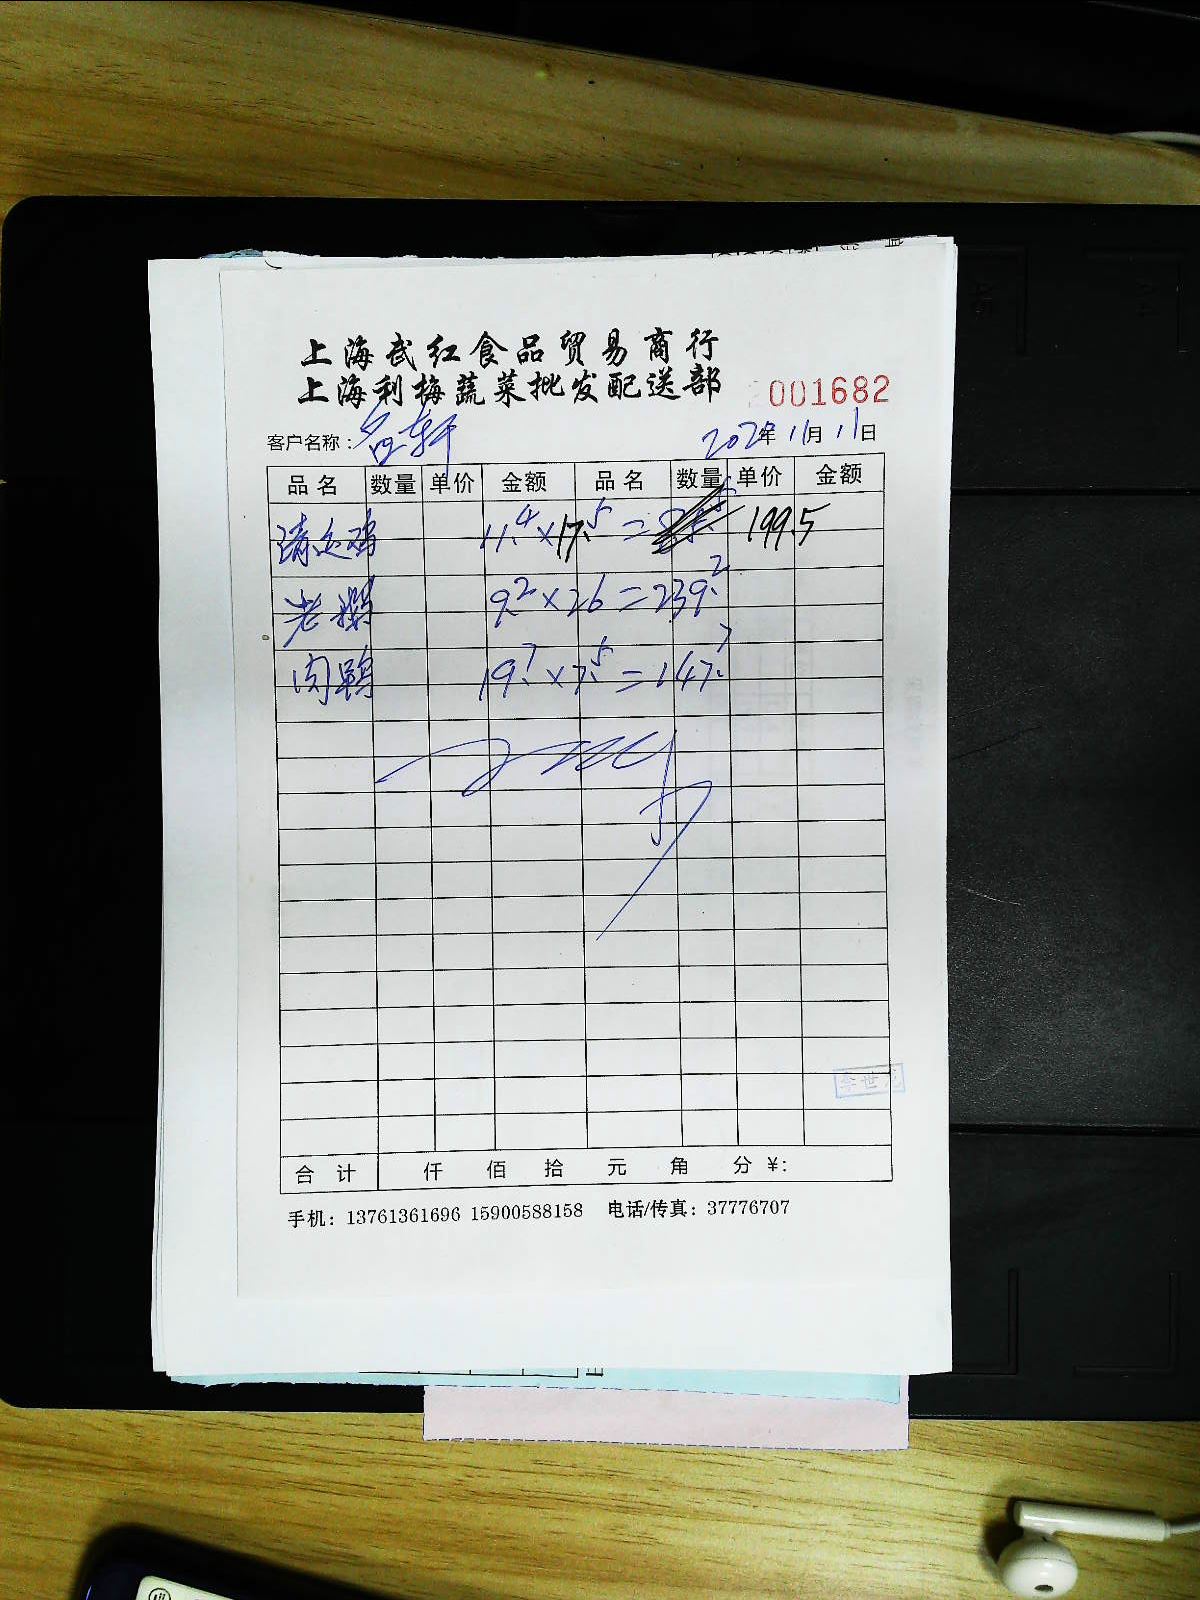 上海武红食品贸易商行
上海利梅蔬菜批发配送部
001682
客户名称：名轩 2020年11月11日
品名 数量 单价 金额 品名 数量 单价 金额
清远鸡 11.4×17.5= 199.5
老鸭 9.2×26=239.2
肉鸭 19.7×7.5=147.7
李世龙
合计 仟 佰 拾 元 角 分 ¥:
手机：13761361696 15900588158 电话/传真：37776707